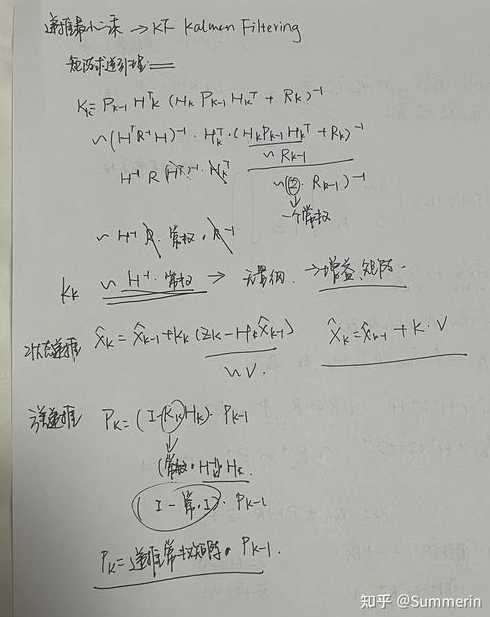 递推最小二乘 → KF Kalmen Filtering
矩阵求逆引理:
K_k = P_{k-1} H_k^T (H_k P_{k-1} H_k^T + R_k)^{-1}
~ (H^T R^{-1} H)^{-1} · H_k^T · (H_k P_{k-1} H_k^T + R_k)^{-1}
~ R_{k-1}
H^{-1} R (H^T)^{-1} · H_k^T
~ (2 · R_{k-1})^{-1}
一个常数
~ H^{-1} R · 常数 · R^{-1}
K_k ~ H^{-1} · 常数 → 无量纲 → 增益矩阵.
状态递推 X̂_k = X̂_{k-1} + K_k (Z_k - H_k X̂_{k-1}) X̂_k = X̂_{k-1} + K · V
~ V.
递推 P_k = (I - K_k H_k) · P_{k-1}
(常数 · H^{-1}) H_k
(I - 常 · I) · P_{k-1}
P_k = 递推常数矩阵 · P_{k-1}.
知乎 @Summerin